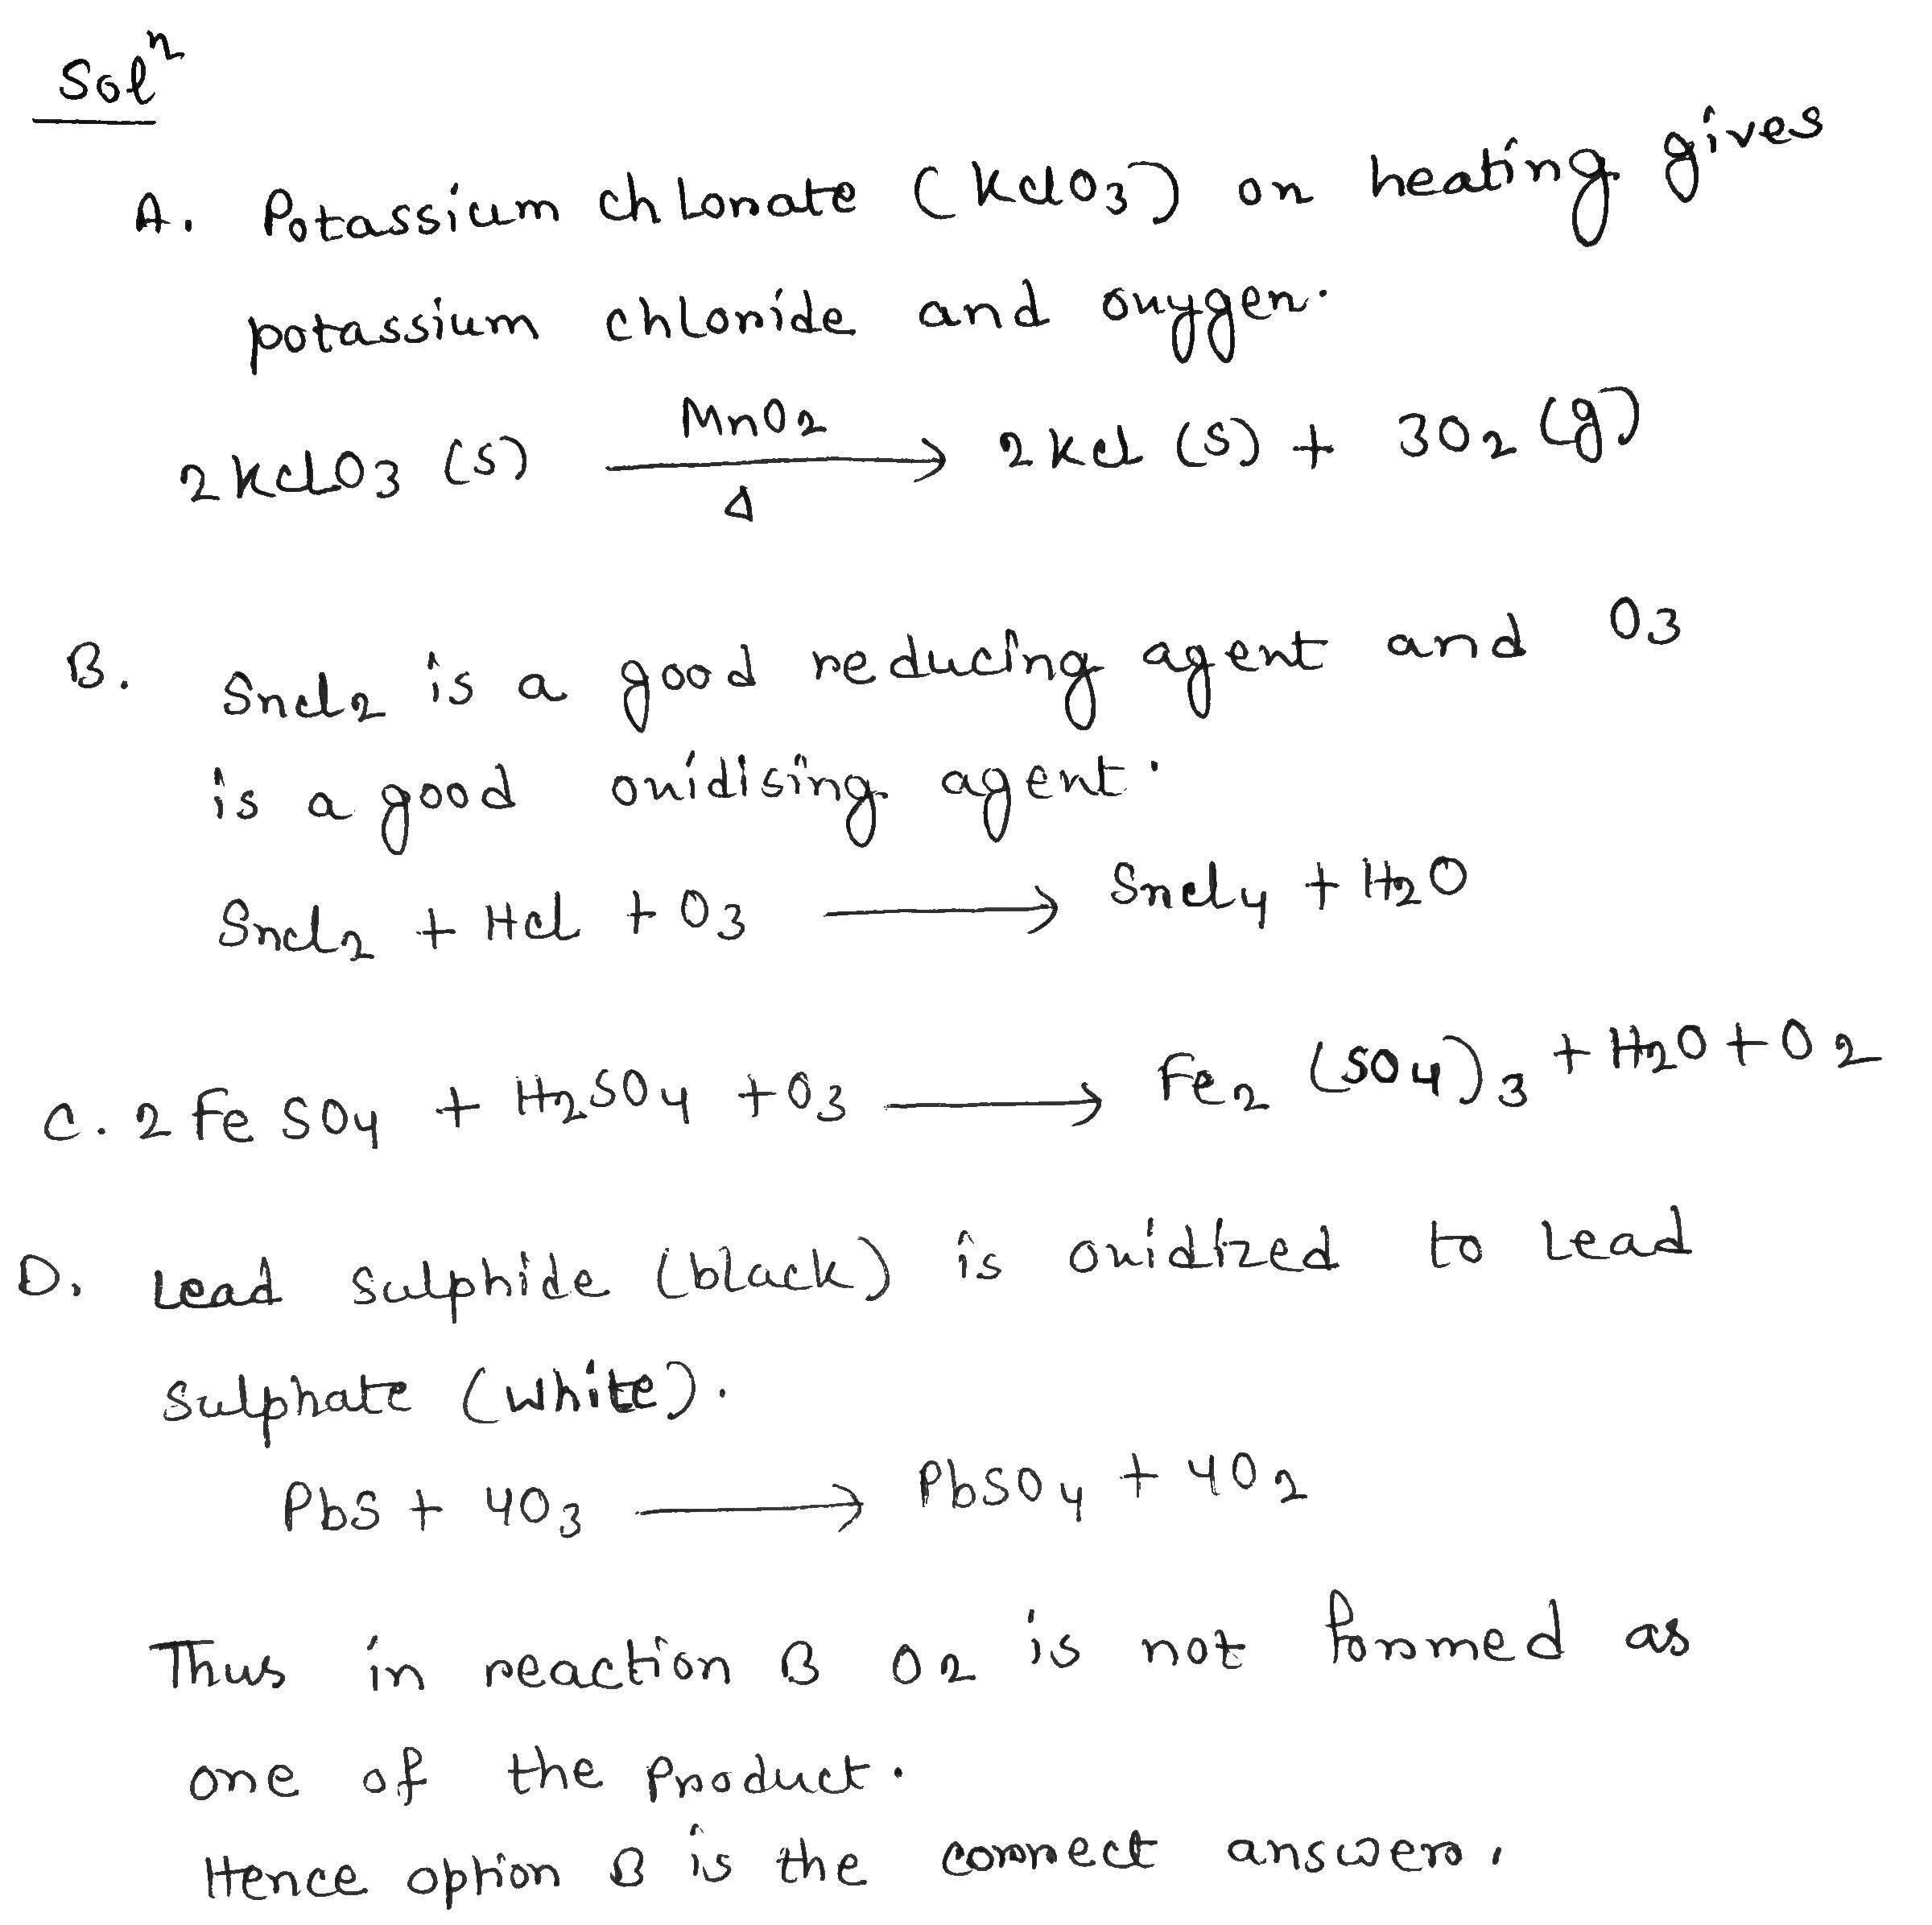 Solⁿ
A. Potassium chlorate (KClO3) on heating gives
potassium chloride and oxygen.
2KClO3 (s) MnO2 Δ → 2KCl (s) + 3O2 (g)
B. SnCl2 is a good reducing agent and O3
is a good oxidising agent.
SnCl2 + HCl + O3 → SnCl4 + H2O
C. 2FeSO4 + H2SO4 + O3 → Fe2(SO4)3 + H2O + O2
D. Lead sulphide (black) is oxidized to Lead
sulphate (white).
PbS + 4O3 → PbSO4 + 4O2
Thus in reaction B O2 is not formed as
one of the product.
Hence option B is the correct answer.